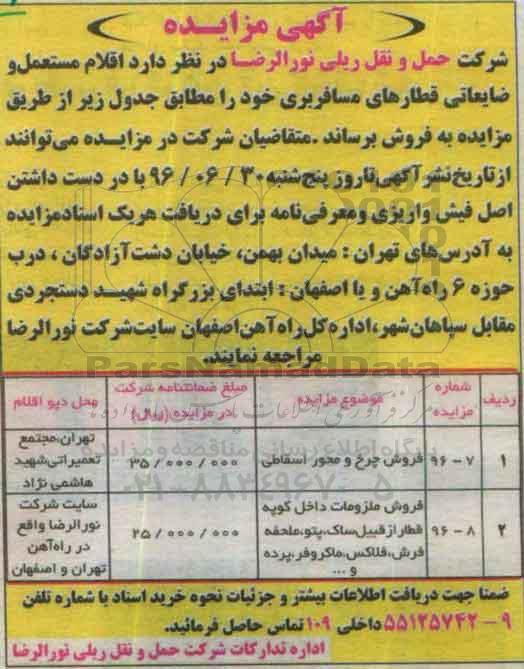 آگهی مزایده
شرکت حمل و نقل ریلی نورالرضا در نظر دارد اقلام مستعمل و
ضایعاتی قطارهای مسافربری خود را مطابق جدول زیر از طریق
مزایده به فروش برساند .متقاضیان شرکت در مزایده می‌توانند
از تاریخ نشر آگهی تا روز پنج‌شنبه ۳۰ / ۰۶ / ۹۶ با در دست داشتن
اصل فیش واریزی ومعرفی‌نامه برای دریافت هریک اسناد مزایده
به آدرس‌های تهران : میدان بهمن، خیابان دشت‌آزادگان ، درب
حوزه ۶ راه‌آهن و یا اصفهان : ابتدای بزرگراه شهید دستجردی
مقابل سپاهان‌شهر،اداره‌کل‌راه‌آهن‌اصفهان سایت‌شرکت نورالرضا
مراجعه نمایند.
ParsNamadData
ردیف
شماره مزایده
موضوع مزایده
مبلغ ضمانتنامه شرکت در مزایده (ریال)
محل دپو اقلام
۱
۷ - ۹۶
فروش چرخ و محور اسقاطی
۳۵/۰۰۰/۰۰۰
تهران،مجتمع
تعمیراتی‌شهید
هاشمی نژاد
۲
۸ - ۹۶
فروش ملزومات داخل کوپه
قطار از قبیل‌ساک،پتو،ملحفه
فرش،فلاکس،ماکروفر،پرده
و ...
۲۵/۰۰۰/۰۰۰
سایت شرکت
نورالرضا واقع
در راه‌آهن
تهران و اصفهان
پایگاه اطلاع رسانی مناقصه و مزایده
۰۲۱-۸۸۳۴۹۶۷۰-۵
ضمنا جهت دریافت اطلاعات بیشتر و جزئیات نحوه خرید اسناد با شماره تلفن
۹ - ۵۵۱۲۵۷۴۲ داخلی ۱۰۹ تماس حاصل فرمائید.
اداره تدارکات شرکت حمل و نقل ریلی نورالرضا